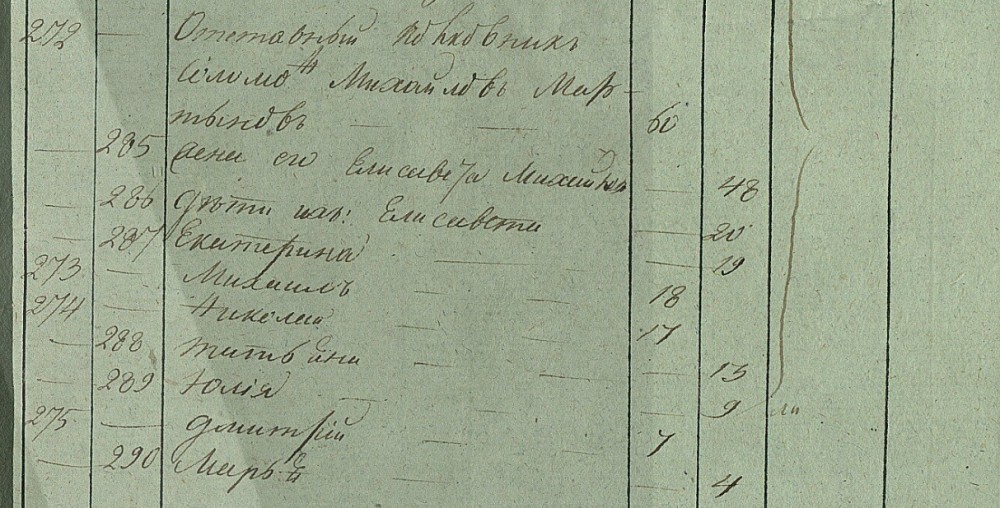 272 — Отставный полковникъ
Соломо нъ Михайловъ Мар-
тыновъ — — 60
— 285 жена его Елисавета Михайлова — 48
— 286 дѣти ихъ: Елисавета — 20
— 287 Екатерина — — 19
273 — Михаилъ — — 18
274 — Николай — — 17
— 288 Татьяна — — — 13
— 289 Юлія — — 9
275 — Дмитрій — — 7
— 290 Марья — — — 4